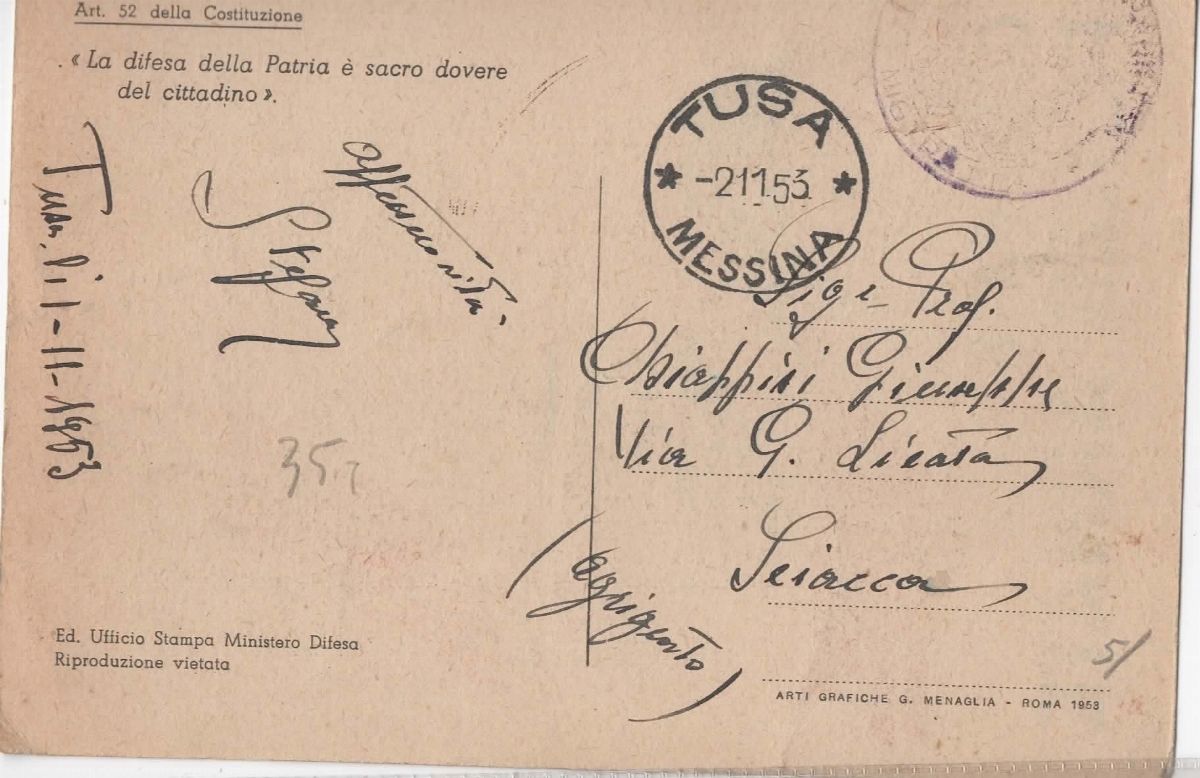 Art. 52 della Costituzione
« La difesa della Patria è sacro dovere
del cittadino ».
TUSA
-2.11.53
MESSINA
Tusa, lì 1-11-1953
Affettuosità
Stefano
35
Sig. Prof.
Chiappisi Giuseppe
Via G. Licata
Sciacca
(Agrigento)
5/
Ed. Ufficio Stampa Ministero Difesa
Riproduzione vietata
ARTI GRAFICHE G. MENAGLIA - ROMA 1953